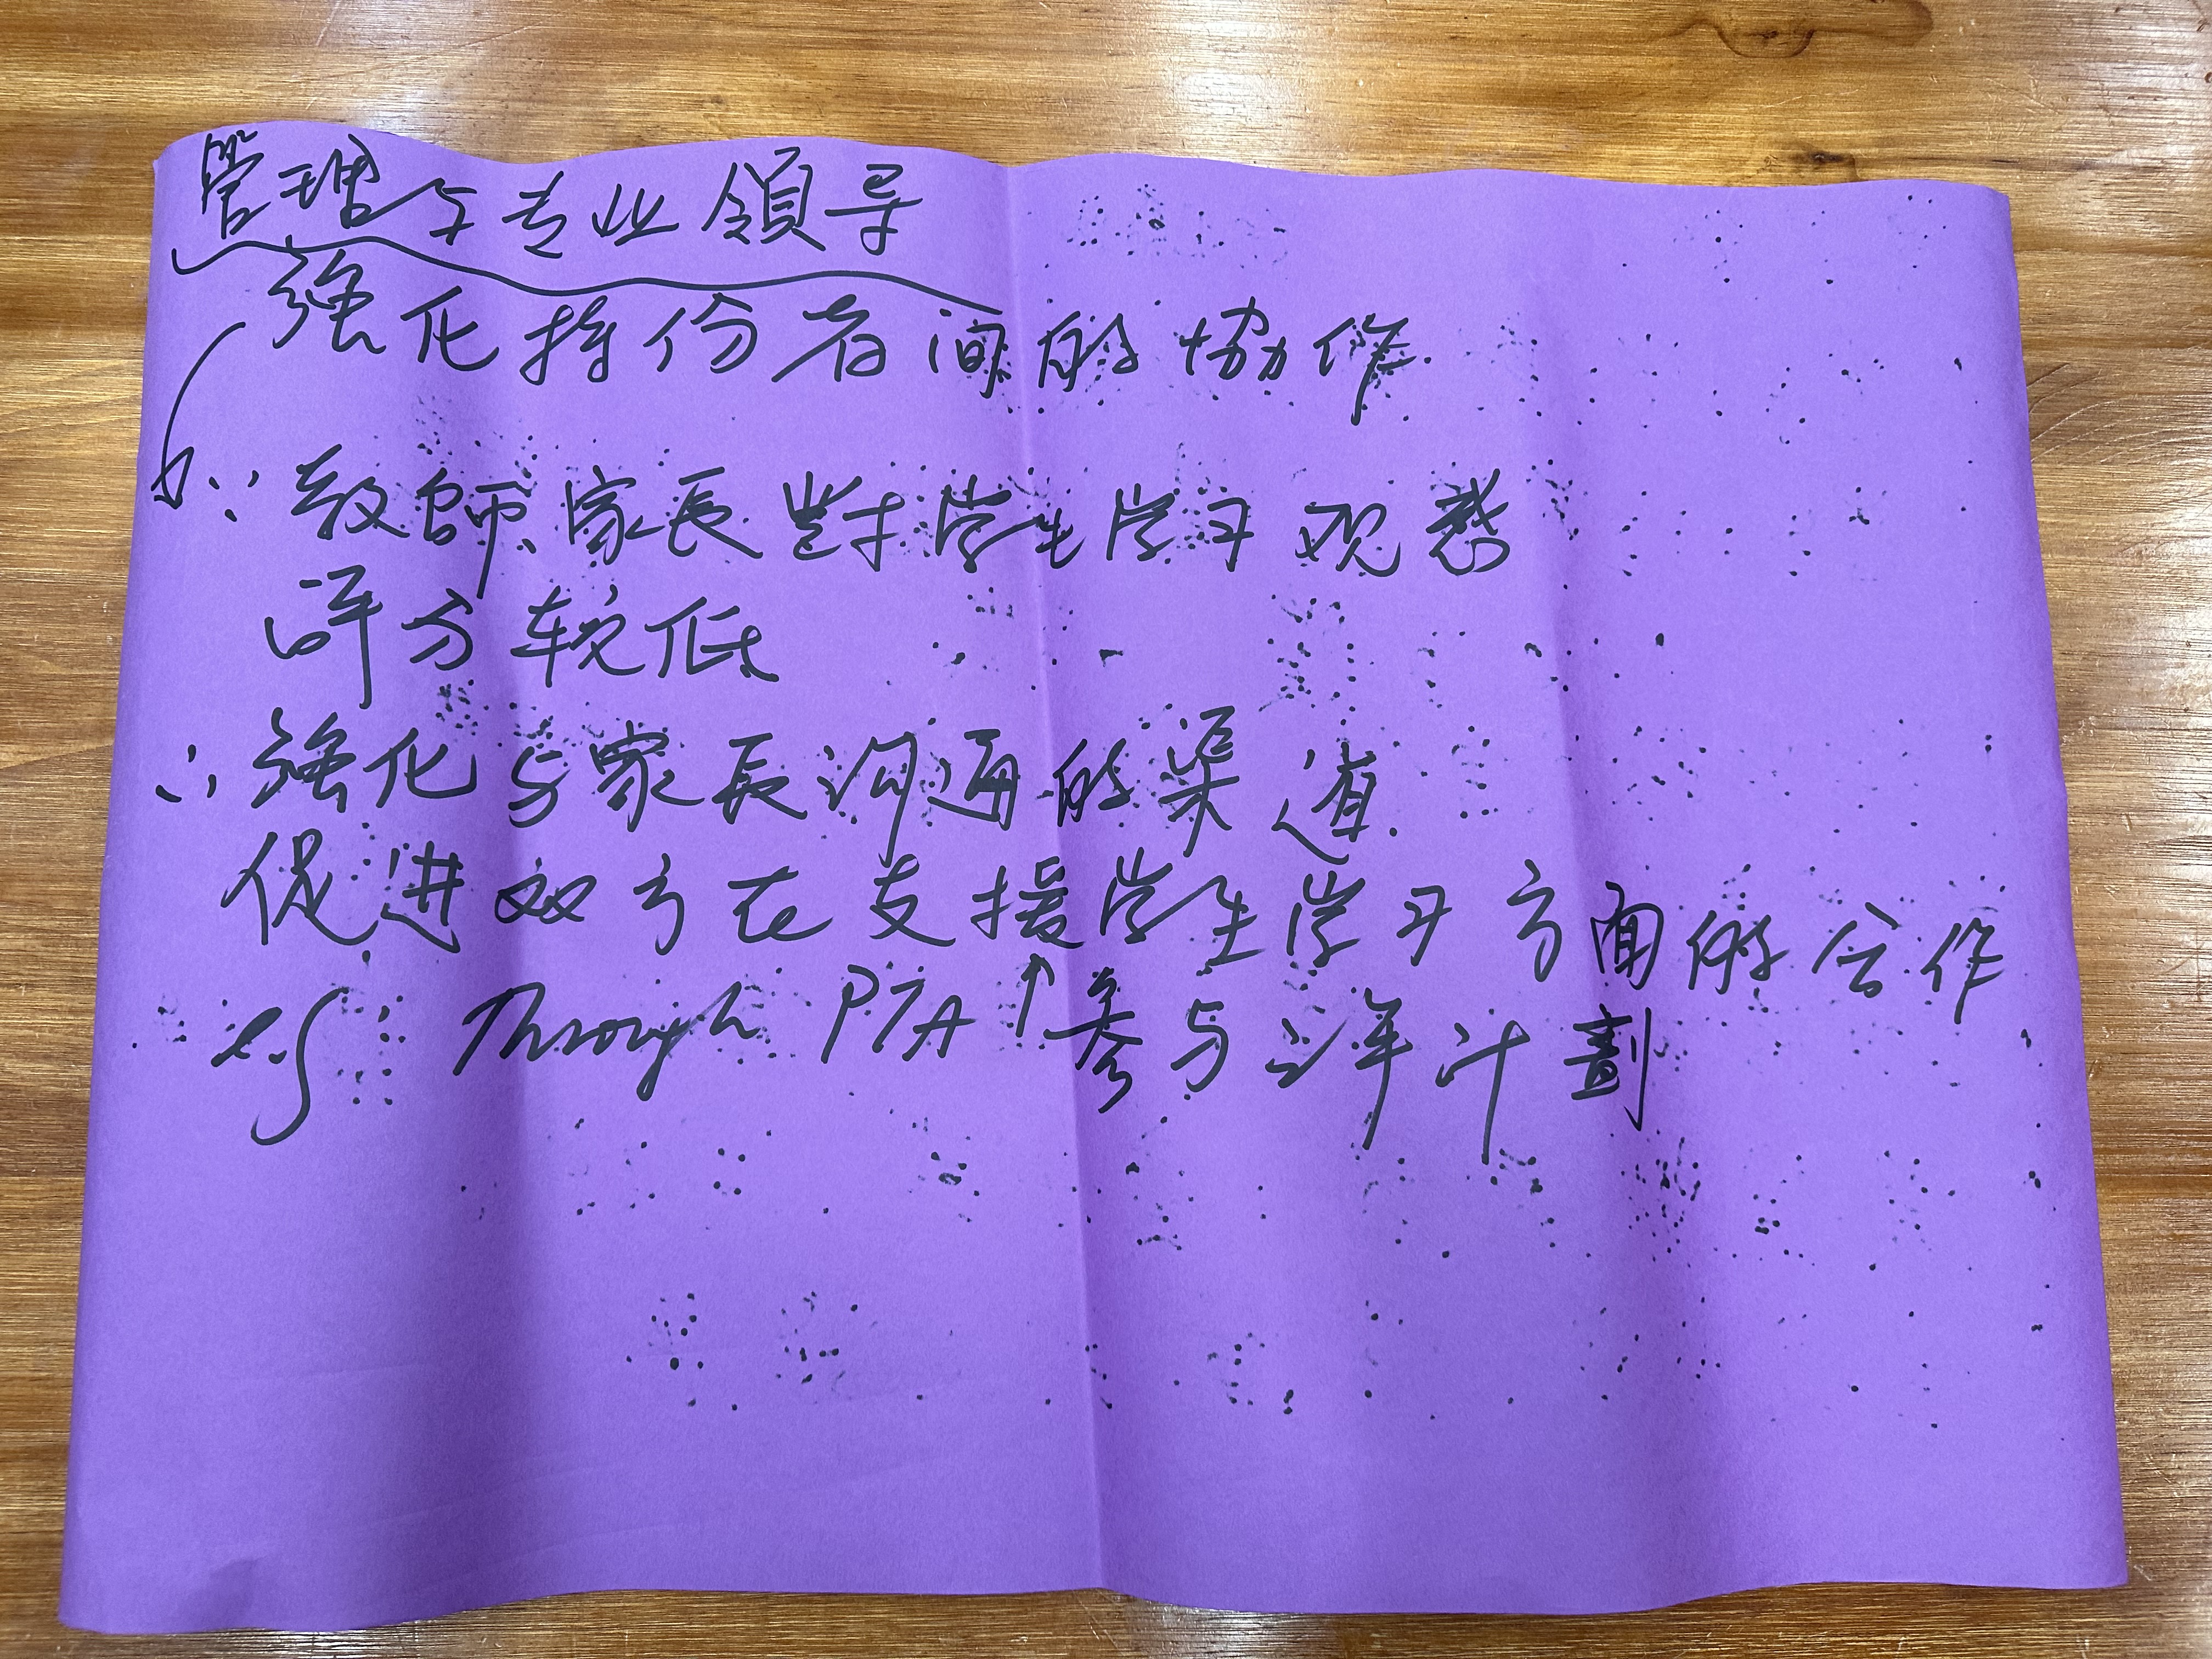 管理与专业領导
強化持份者间的協作
∵ 教師、家長對学生学习观感
評分较低
∴ 強化与家長沟通的渠道
促进双方在支援学生学习方面的合作
e.g Through PTA ↑ 参与三年计劃